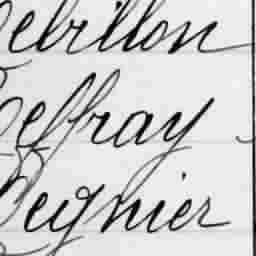 Rebillon
Reffray
Regnier